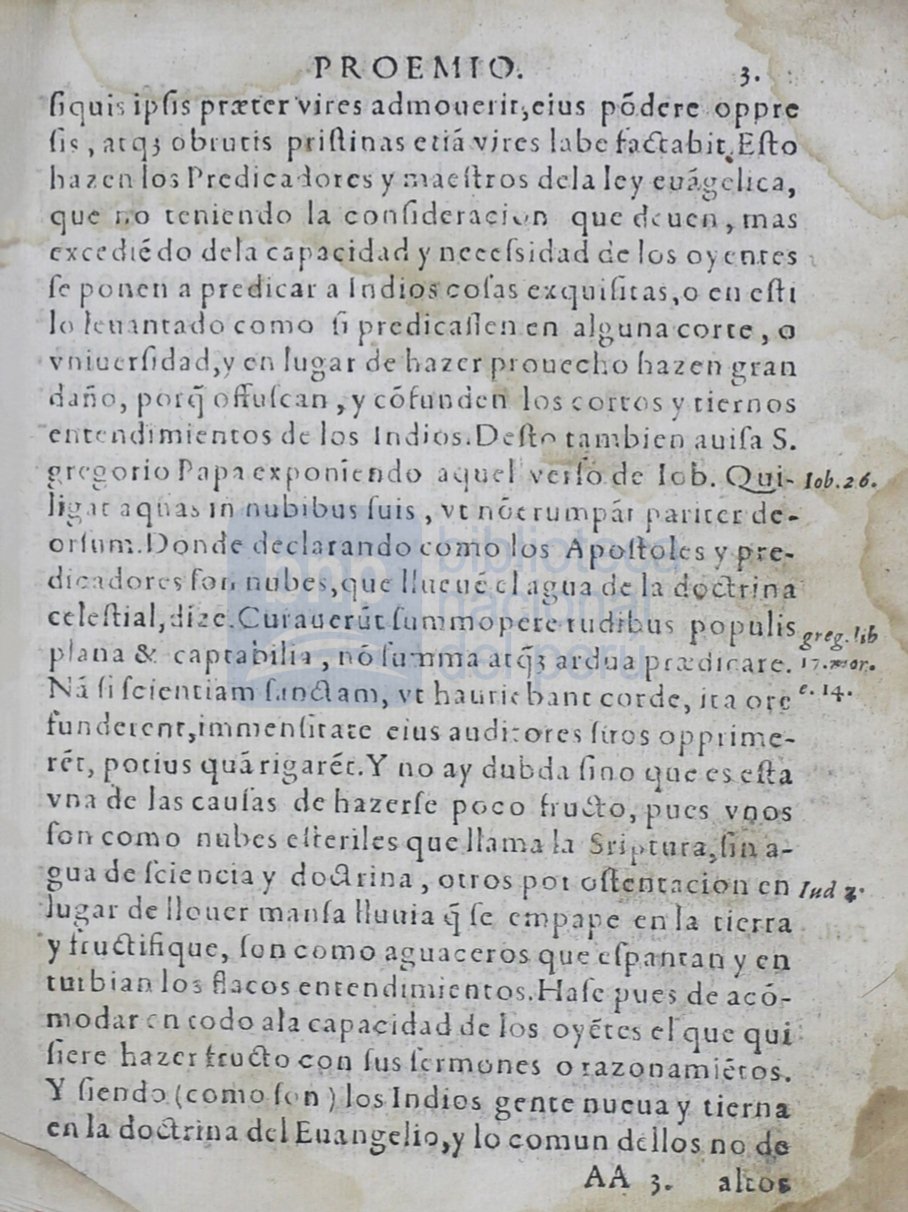 PROEMIO. 3.
ſiquis ipſis præter vires admouerit, eius põdere oppre
ſis, atq; obrutis priſtinas etiá vires labe factabit. Eſto
hazen los Predicadores y maeſtros dela ley euágelica,
que no teniendo la conſideracion que deuen, mas
excediédo dela capacidad y neceſsidad de los oyentes
ſe ponen a predicar a Indios coſas exquiſitas, o en eſti
lo leuantado como ſi predicaſſen en alguna corte, o
vniuerſidad, y en lugar de hazer prouecho hazen gran
daño, porq̃ offuſcan, y cõfunden los cortos y tiernos
entendimientos de los Indios. Deſto tambien auiſa S.
gregorio Papa exponiendo aquel verſo de Iob. Qui- Iob. 26.
ligat aquas in nubibus ſuis, vt nõ erumpát pariter de-
orſum. Donde declarando como los Apoſtoles y pre-
dicadores ſon nubes, que llueué el agua de la doctrina
celeſtial, dize. Curauerũt ſummopere rudibus populis greg. lib
plana & captabilia, nõ ſumma atq; ardua prædicare. 17. mor.
Nã ſi ſcientiam ſanctam, vt hauriebant corde, ita ore c. 14.
funderent, immenſitate eius auditores ſuos opprime-
rét, potius quã rigarét. Y no ay dubda ſino que es eſta
vna de las cauſas de hazerſe poco fructo, pues vnos
ſon como nubes eſteriles que llama la Sriptura, ſin a-
gua de ſciencia y doctrina, otros por oſtentacion en Iud
lugar de llouer manſa lluuia q̃ ſe empape en la tierra
y fructifique, ſon como aguaceros que eſpantan y en
turbian los flacos entendimientos. Haſe pues de acó-
modar en todo ala capacidad de los oyẽtes el que qui
ſiere hazer fructo con ſus ſermones o razonamiétos.
Y ſiendo (como ſon) los Indios gente nueua y tierna
en la doctrina del Euangelio, y lo comun dellos no de
AA 3. altos
bnp biblioteca
nacional
del perú